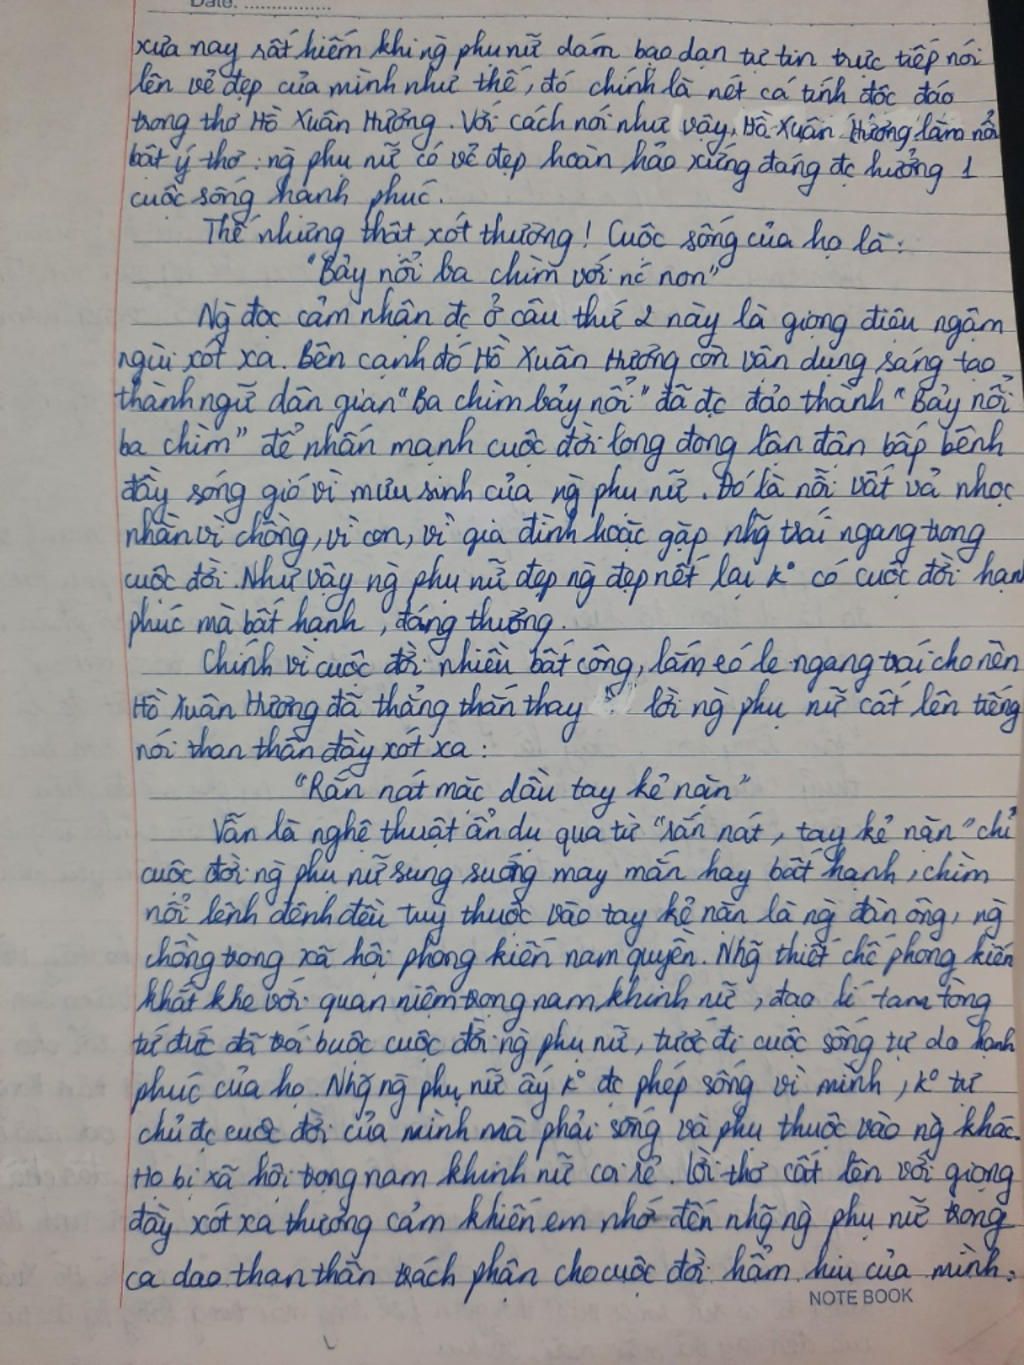 Date: ................
xưa nay rất hiếm khi ng̀ phụ nữ dám bạo dạn tự tin trực tiếp nói
lên vẻ đẹp của mình như thế, đó chính là nét cá tính độc đáo
trong thơ Hồ Xuân Hương. Với cách nói như vậy, Hồ Xuân Hương làm nổi
bật ý thơ: ng̀ phụ nữ có vẻ đẹp hoàn hảo xứng đáng đc hưởng 1
cuộc sống hạnh phúc.
Thế nhưng thật xót thương! Cuộc sống của họ là:
"Bảy nổi ba chìm với nc non"
Ng̀ đọc cảm nhận đc ở câu thứ 2 này là giọng điệu ngậm
ngùi xót xa. Bên cạnh đó Hồ Xuân Hương còn vận dụng sáng tạo
thành ngữ dân gian "Ba chìm bảy nổi" đã đc đảo thành "Bảy nổi
ba chìm" để nhấn mạnh cuộc đời long đong lận đận bấp bênh
đầy sóng gió vì mưu sinh của ng̀ phụ nữ. Đó là nỗi vất vả nhọc
nhằn vì chồng, vì con, vì gia đình hoặc gặp nhg̃ trái ngang trong
cuộc đời. Như vậy ng̀ phụ nữ đẹp ng̀ đẹp nết lại k° có cuộc đời hạn
phúc mà bất hạnh, đáng thương.
Chính vì cuộc đời nhiều bất công, lắm éo le ngang trái cho nên
Hồ Xuân Hương đã thẳng thắn thay lời ng̀ phụ nữ cất lên tiếng
nói than thân đầy xót xa:
"Rắn nát mặc dầu tay kẻ nặn"
Vẫn là nghệ thuật ẩn dụ qua từ "rắn nát, tay kẻ nặn" chỉ
cuộc đời ng̀ phụ nữ sung sướng may mắn hay bất hạnh, chìm
nổi lênh đênh đều tuỳ thuộc vào tay kẻ nặn là ng̀ đàn ông, ng̀
chồng trong xã hội phong kiến nam quyền. Nhg̃ thiết chế phong kiến
khắt khe với quan niệm trọng nam khinh nữ, đạo lí tam tòng
tứ đức đã trói buộc cuộc đời ng̀ phụ nữ, tước đi cuộc sống tự do hạnh
phúc của họ. Nhg̃ ng̀ phụ nữ ấy k° đc phép sống vì mình, k° tự
chủ đc cuộc đời của mình mà phải sống và phụ thuộc vào ng̀ khác.
Họ bị xã hội trọng nam khinh nữ coi rẻ. Lời thơ cất lên với giọng
đầy xót xa thương cảm khiến em nhớ đến nhg̃ ng̀ phụ nữ trong
ca dao than thân trách phận cho cuộc đời hẩm hiu của mình:
NOTE BOOK